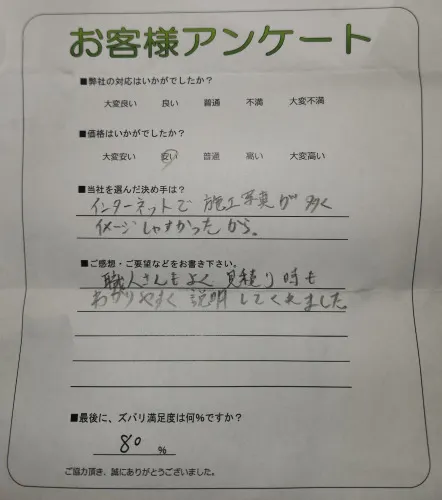 お客様アンケート
■弊社の対応はいかがでしたか?
大変良い 良い 普通 不満 大変不満
■価格はいかがでしたか?
大変安い 安い 普通 高い 大変高い
■当社を選んだ決め手は?
インターネットで 施工写真が多く
イメージしやすかったから。
■ご感想・ご要望などをお書き下さい。
職人さんもよく 見積り時も
わかりやすく 説明してくれました
■最後に、ズバリ満足度は何%ですか?
80 %
ご協力頂き、誠にありがとうございました。